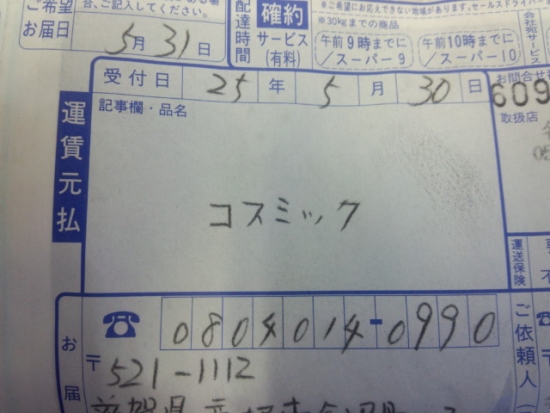 合、ご記入してください。
ご希望
お届日
5月31日
配達時間
確約
サービス
(有料)
※30kgまでの商品
※ご希望にお応えできない地域があります。セールスドライバー
午前9時までに
/スーパー9
午前10時までに
/スーパー10
受付日 25年5月30日
お問合せ
609
取扱店
運賃元払
記事欄・品名
コスミック
運送保険
☎ 0804014-0990
お届
〒521-1112
ご依頼人